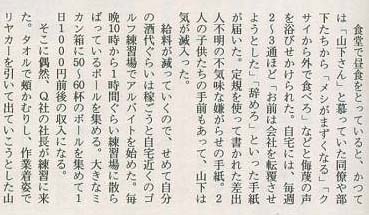 食堂で昼食をとっていると、かつて
は「山下さん」と慕っていた同僚や部
下たちから「メシがまずくなる」「ク
サイから外で食べろ」などと侮蔑の声
を浴びせかけられた。自宅には、毎週
2〜3通ほど「お前は会社を転覆させ
ようとした」「辞めろ」といった手紙
が届いた。定規を使って書かれた差出
人不明の不気味な嫌がらせの手紙。2
人の子供たちの手前もあって、山下は
気が滅入った。
給料が減っていくので、せめて自分
の酒代ぐらいは稼ごうと自宅近くのゴ
ルフ練習場でアルバイトを始めた。毎
晩10時から1時間ぐらい練習場に散ら
ばっているボールを集める。大きなミ
カン箱に50〜60杯のボールを集めて1
日1000円前後の収入になる。
そこに偶然、Q社の社長が練習に来
た。タオルで頰かむりし、作業着姿で
リヤカーを引いて出ていこうとした山